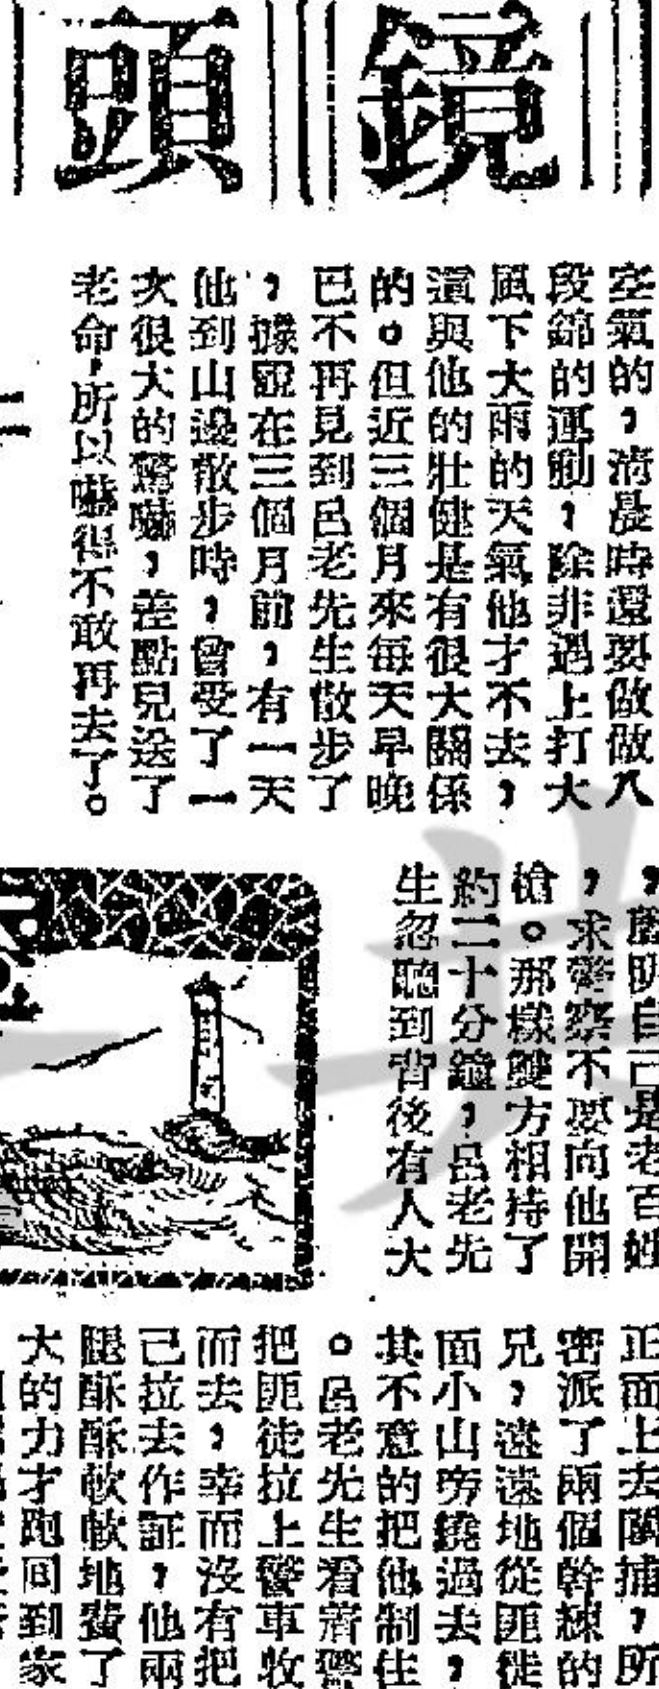 鏡頭
空氣的，清晨時還要做做八
段錦的運動，除非遇上打大
風下大雨的天氣他才不去，
這與他的壯健是有很大關係
的。但近三個月來每天早晚
已不再見到呂老先生散步了
，據說在三個月前，有一天
他到山邊散步時，曾受了一
次很大的驚嚇，差點兒送了
老命，所以嚇得不敢再去了。
，聲明自己是老百姓
，求警察不要向他開
槍。那樣雙方相持了
約二十分鐘，呂老先
生忽聽到背後有人大
正面上去圍捕，所
密派了兩個幹練的
兄，遠遠地從匪徒
面小山旁繞過去，
其不意的把他制住
。呂老先生看着警
把匪徒拉上警車收
而去，幸而沒有把
己拉去作証，他兩
腿酥酥軟軟地費了
大的力才跑回到家